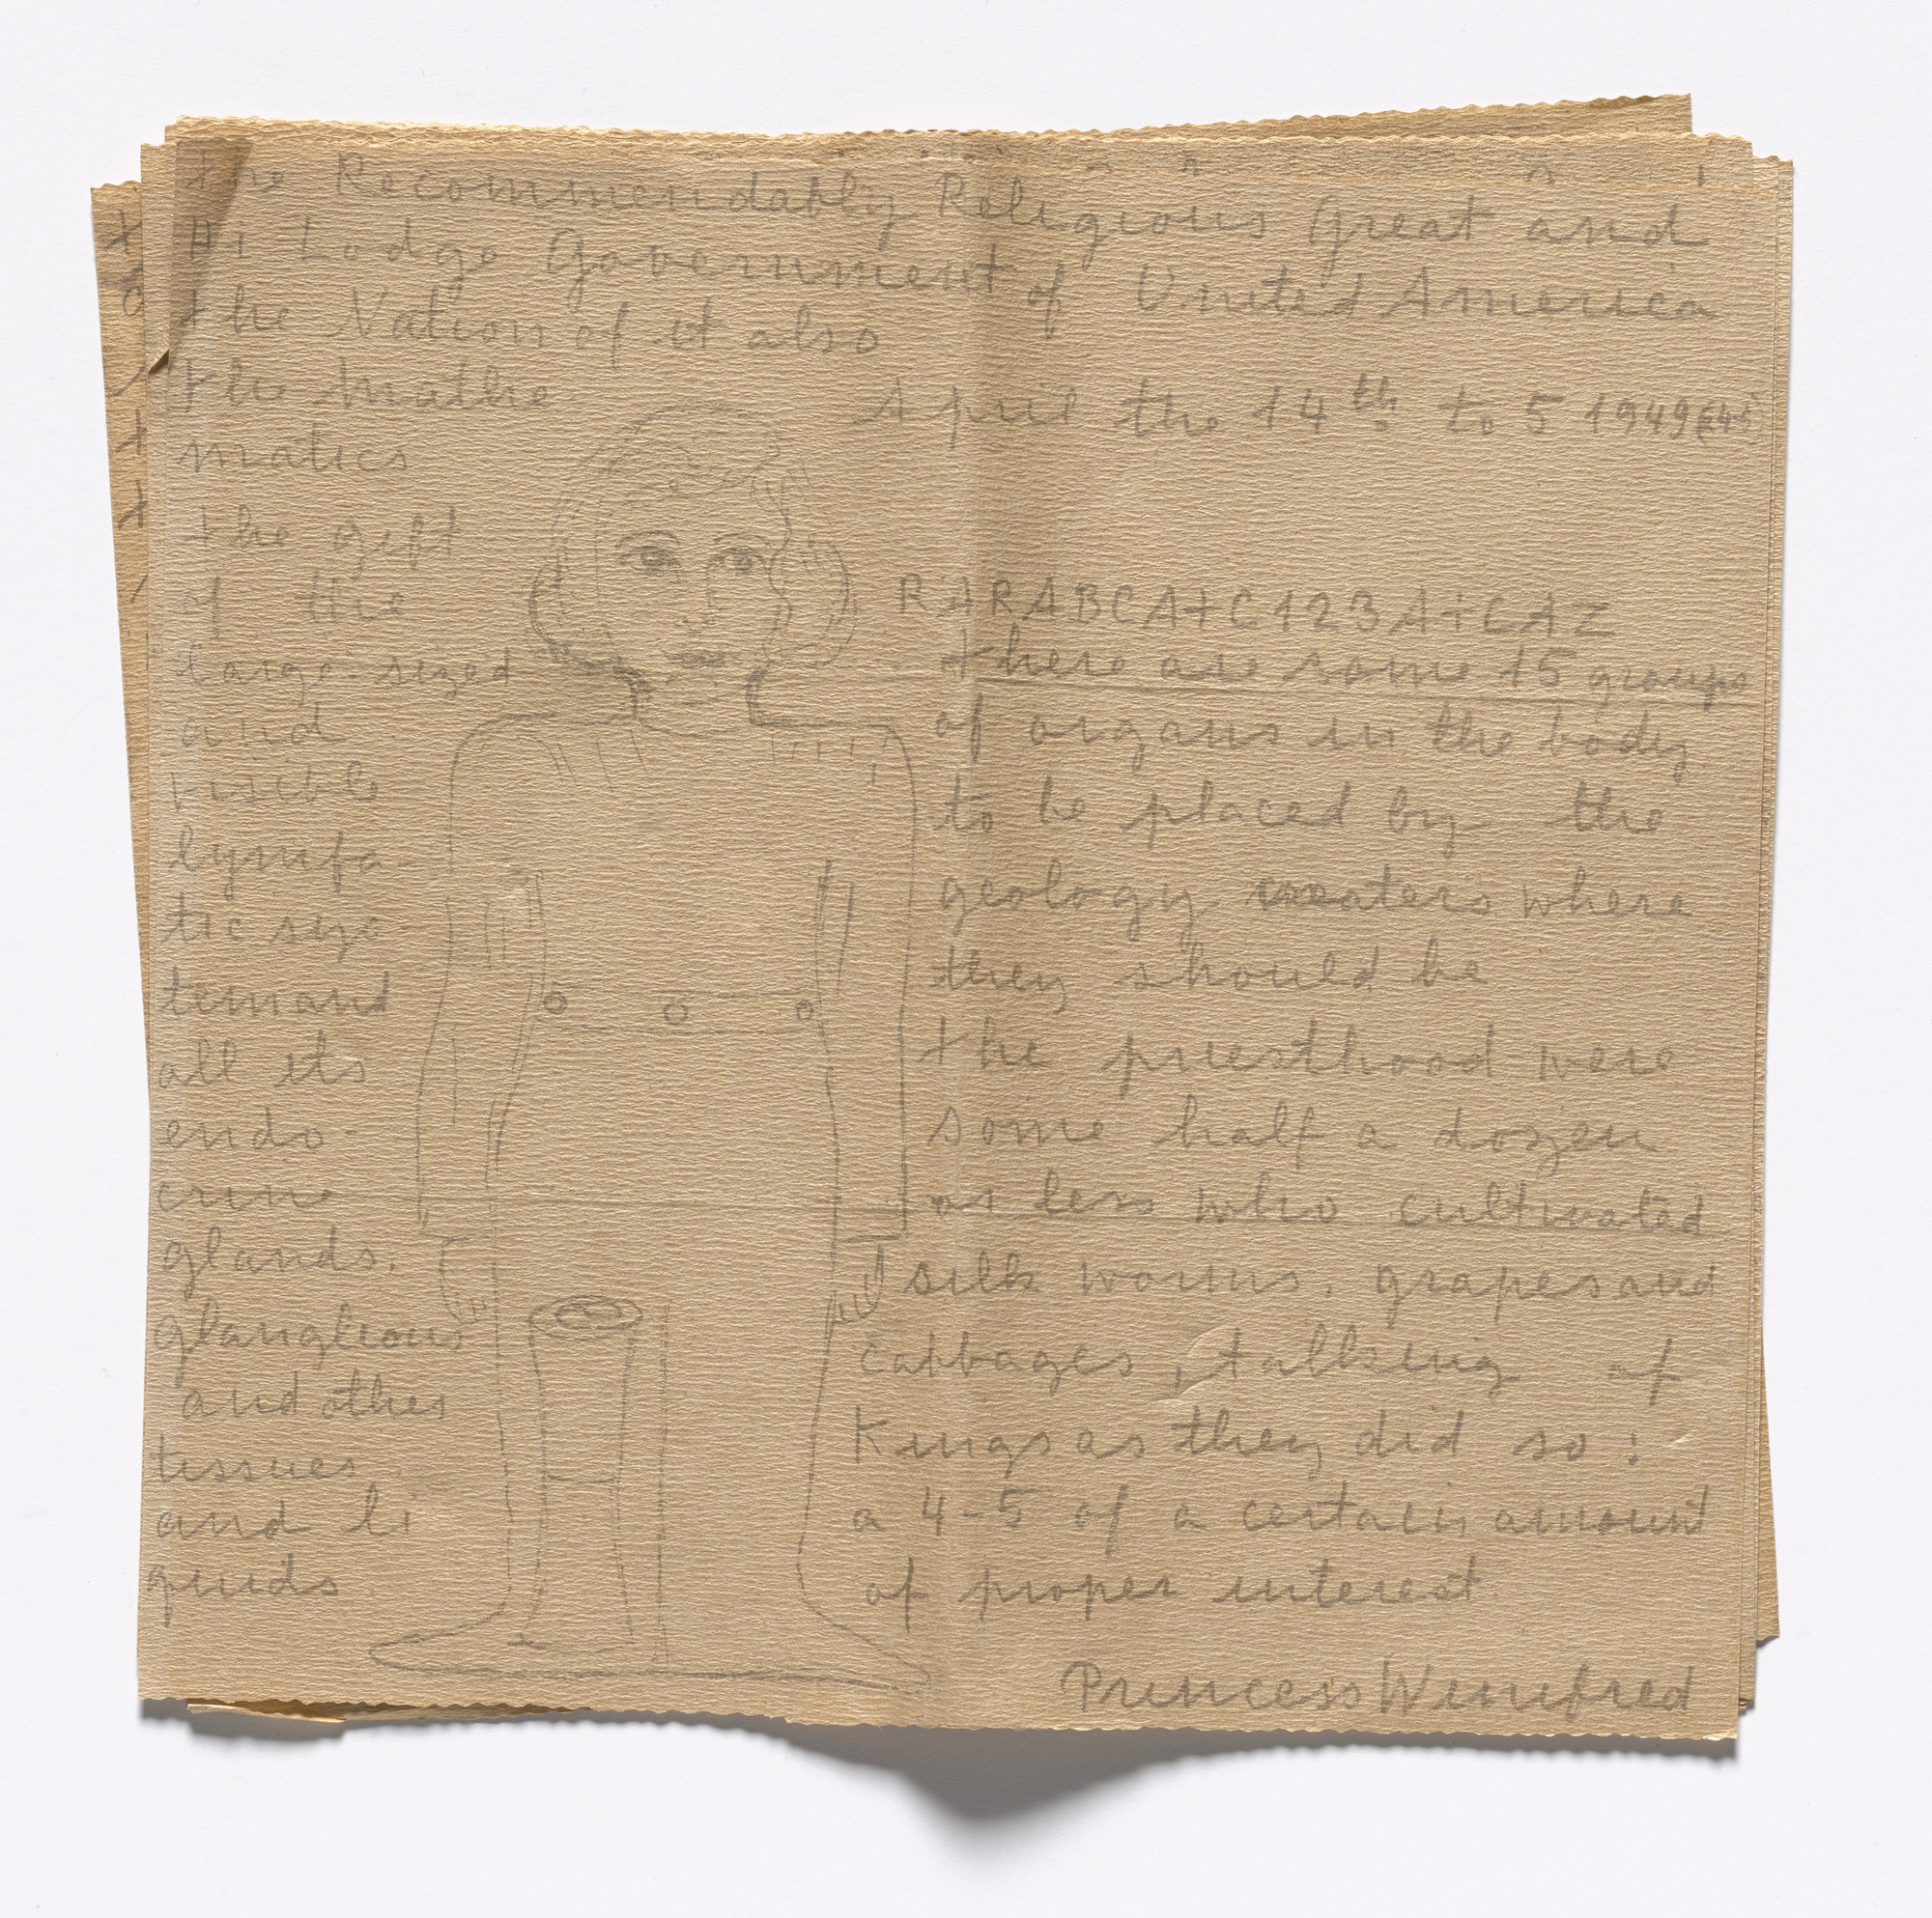 the Recommendably Religious Great and
Hi Lodge Government of United America
the Nation of it also
the mathe
matics
the gift
of the
large-sized
and
visible
lymfa-
tic sys-
tem and
all its
endo-
crine
glands.
glanglions
and other
tissues
and li
quids
April the 14th to 5 1949
RARABCA+C123A+CAZ
there are some 15 groups
of organs in the body
to be placed by the
geology where
they should be
the priesthood were
some half a dozen
or less who cultivated
silk worms, grapes and
cabbages, talking of
Kings as they did so:
a 4-5 of a certain amount
of proper interest
Princess Winifred